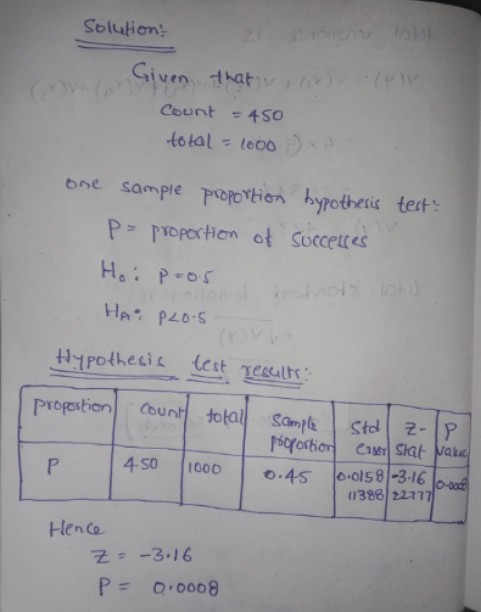 Solution:
Given that
Count = 450
total = 1000
one sample proportion hypothesis test:
P = proportion of successes
H₀: P=0.5
HA: P<0.5
Hypothesis test results:
proportion Count total Sample proportion Std error Z-Stat P value
P 450 1000 0.45 0.015811388 -3.1622777 0.0008
Hence
Z = -3.16
P = 0.0008